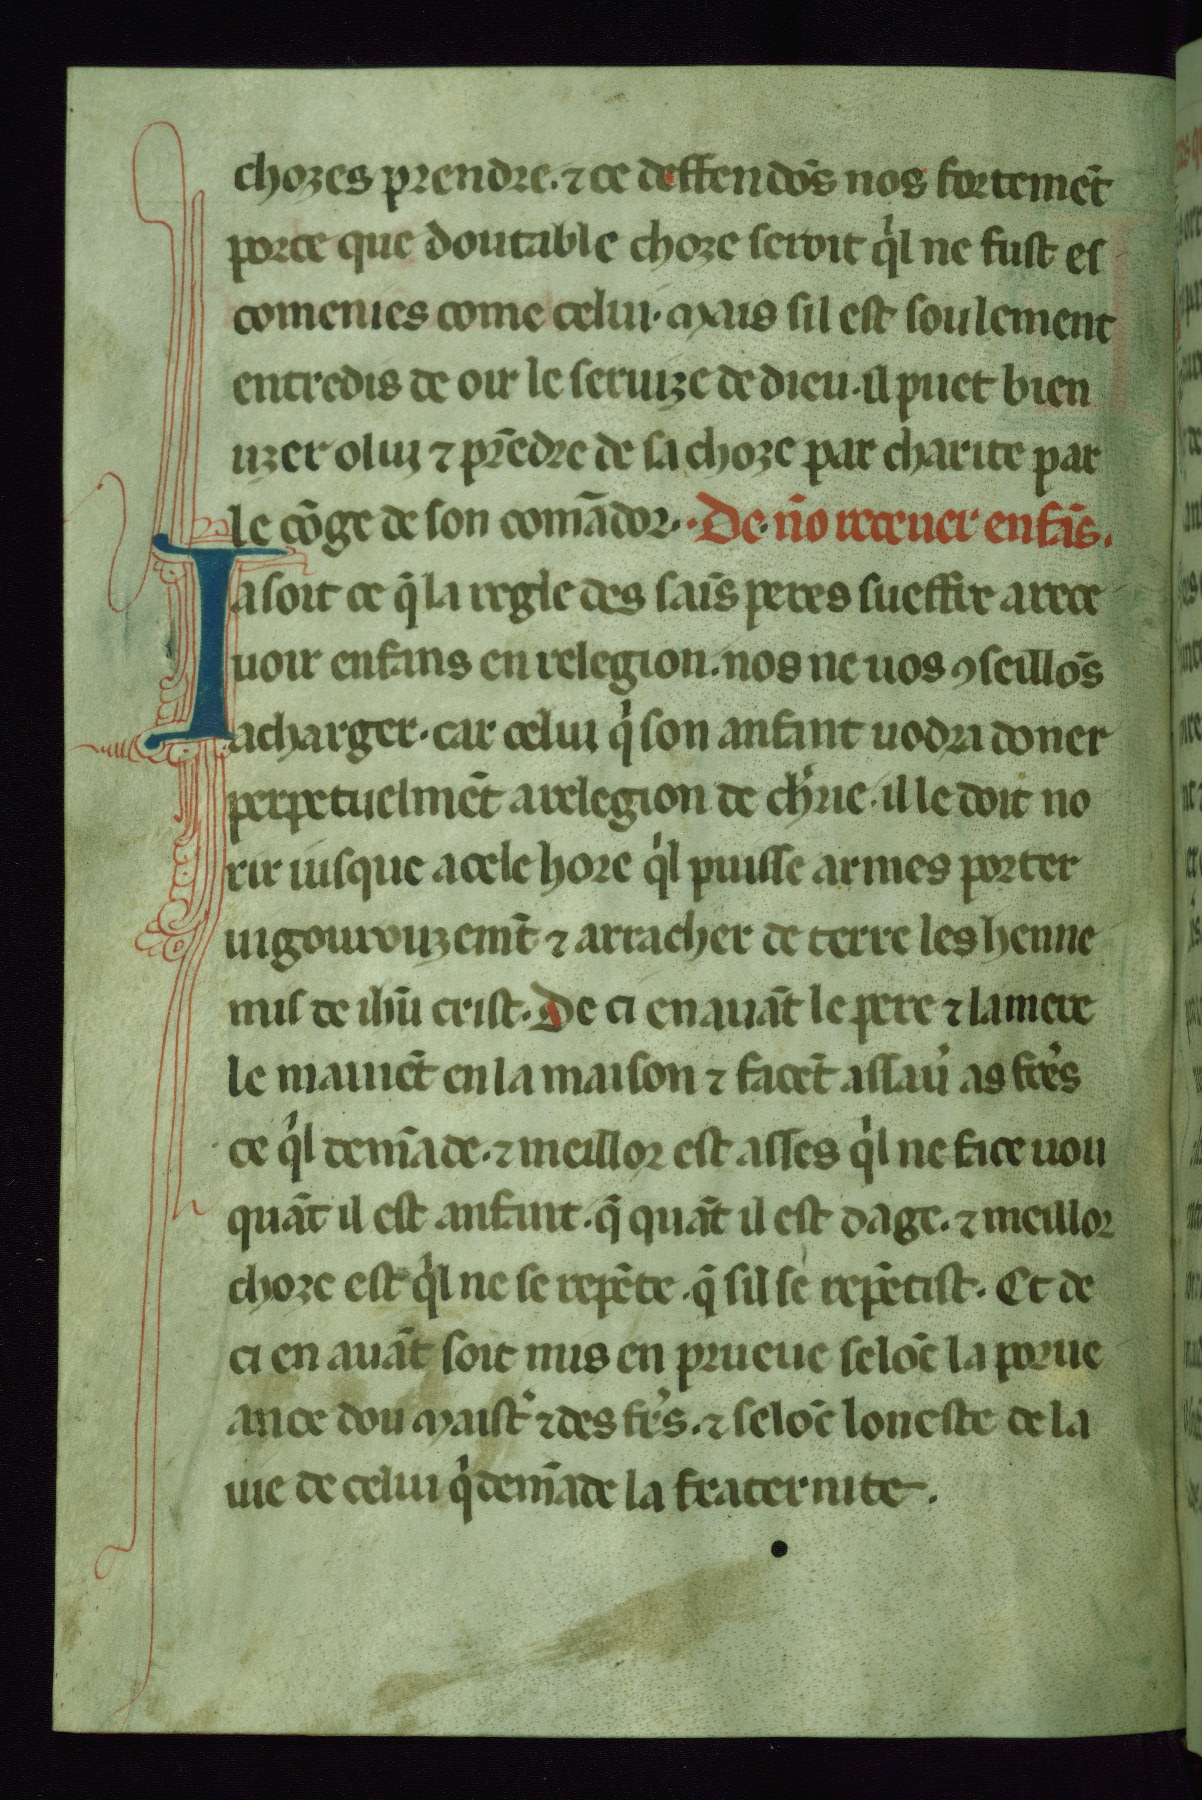 chozes prendre. ⁊ ce deffendōs nos fortemēt
porce que doutable choze seroit qͥl ne fust es
comenies come celui. Mais sil est soulement
entredis de oir le seruize de dieu. il puet bien
uzer o lui ⁊ prēdre de sa choze par charite par
le cōge de son comādor. De nō receuer enfās.
Ia soit ce q̄ la regle des saīs peres sueffre a rece
uoir enfans en relegion. nos ne uos ꝯseillōs
a charger. car celui qͥ son anfant uodra doner
perpetuelmēt a relegion de chͬrie. il le doit no
rir iusque a cele hore qͥl puisse armes porter
uigourouzemt̄ ⁊ arracher de terre les henne
mis de ihū crist. De ci en auāt le pere ⁊ la mere
le mainēt en la maison ⁊ facēt assau͛ as fre͛s
ce qͥl demāde. ⁊ meillor est asses qͥl ne face uou
quāt il est anfant. q̄ quāt il est dage. ⁊ meillor
choze est qͥl ne se repēte. q̄ sil se repētist. Et de
ci en auāt soit mis en prueue selōc la porue
ance dou Maistͬ ⁊ des fre͛s. ⁊ selōc loneste de la
uie de celui qͥ demāde la fraternite.